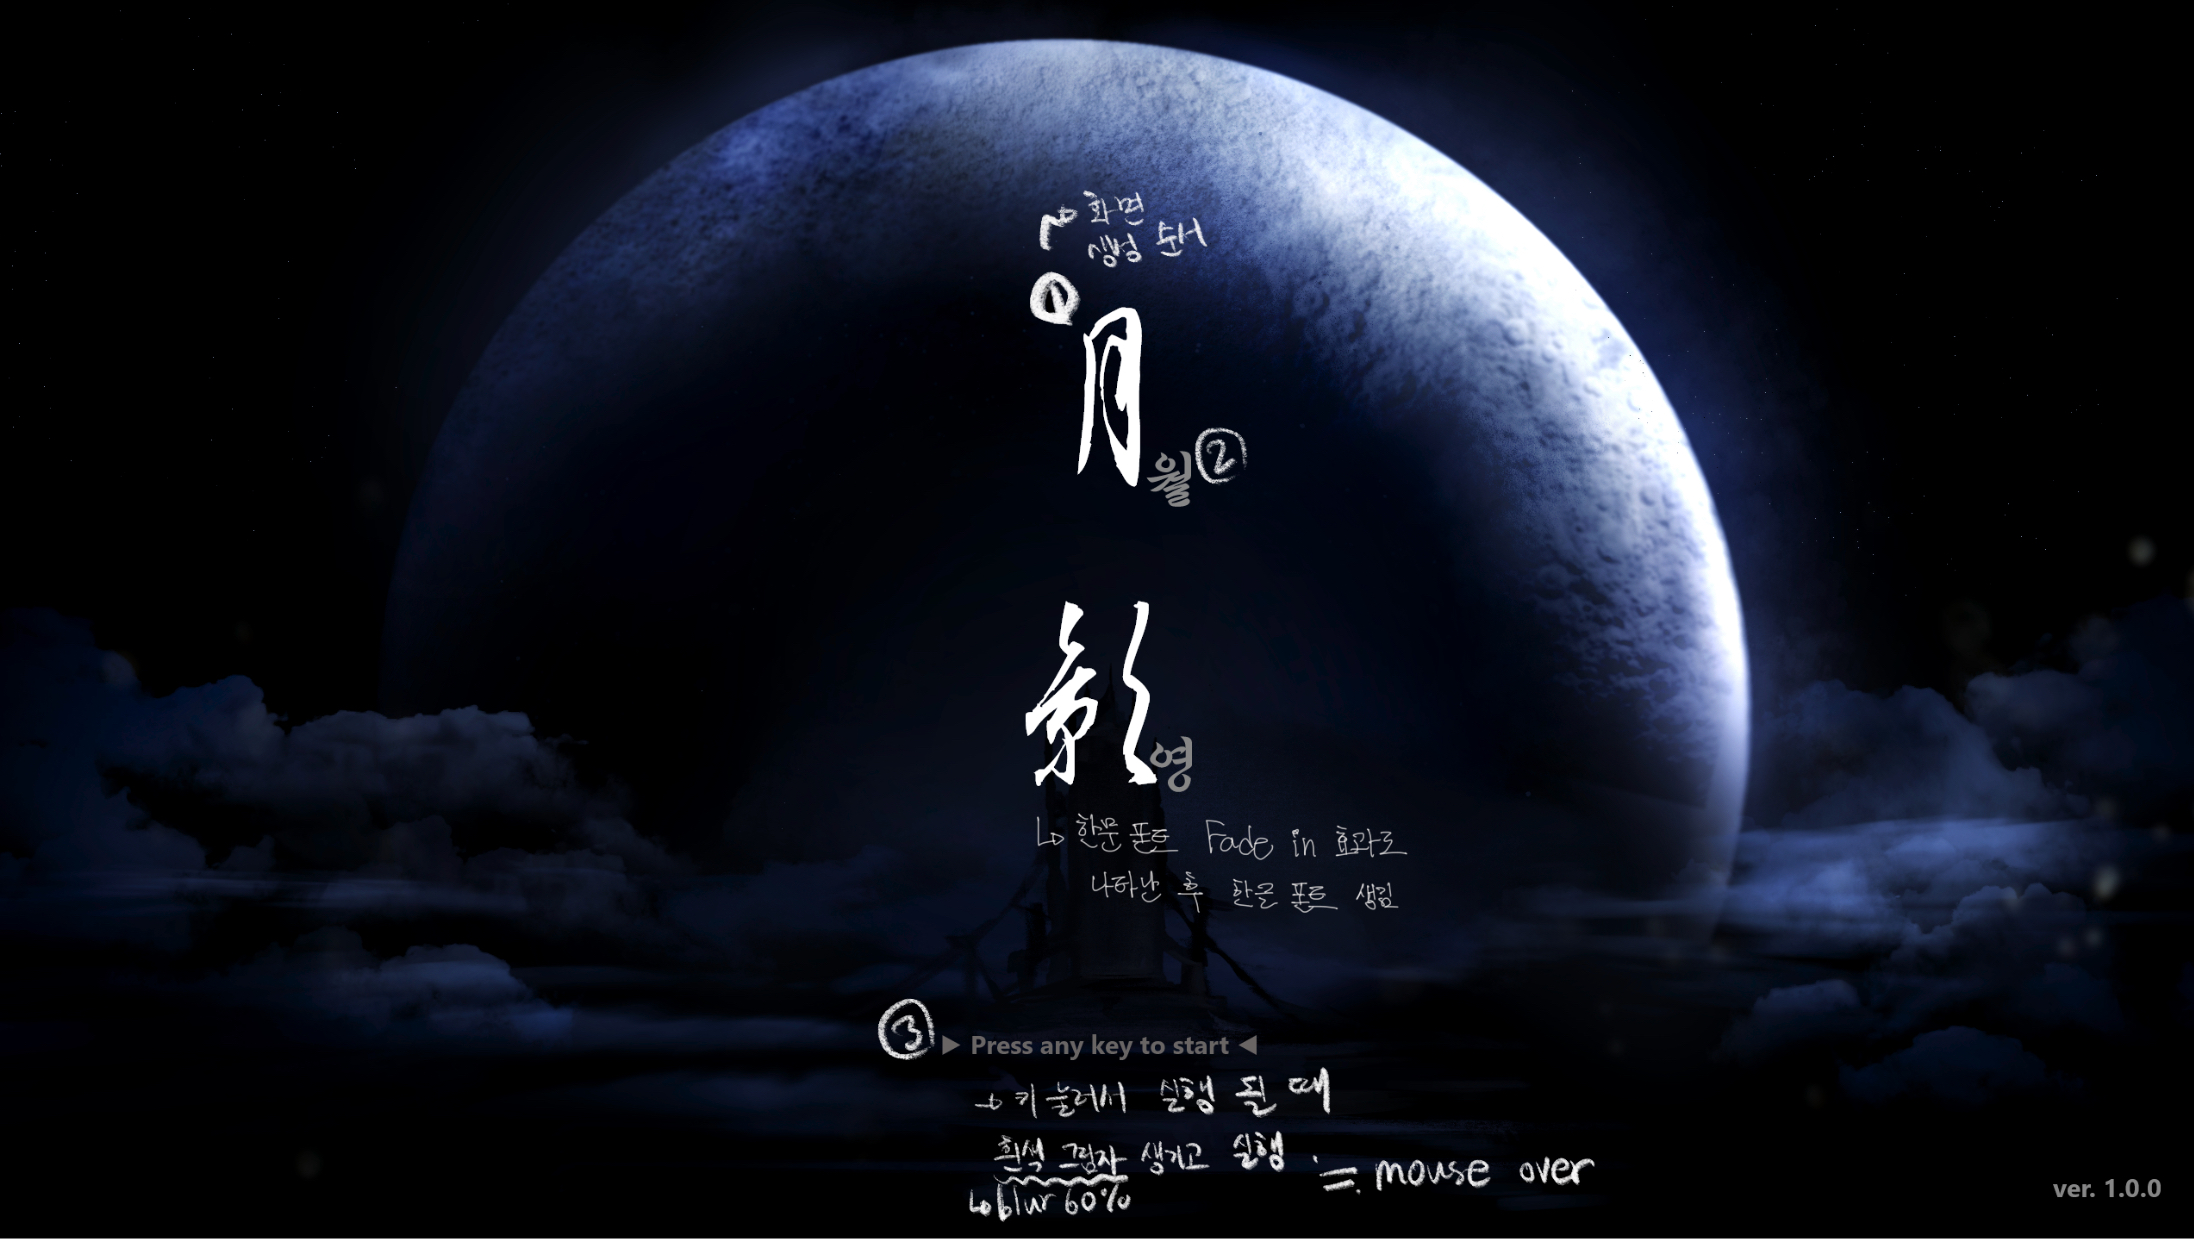 화면
생성 순서
①
月
월 ②
影
영
↳ 한문 폰트 Fade in 효과로
나타난 후 한글 폰트 생김
③ ▶ Press any key to start ◀
→ 키 눌러서 실행 될 때
흰색 그림자 생기고 실행 ≒ mouse over
↳ blur 60%
ver. 1.0.0